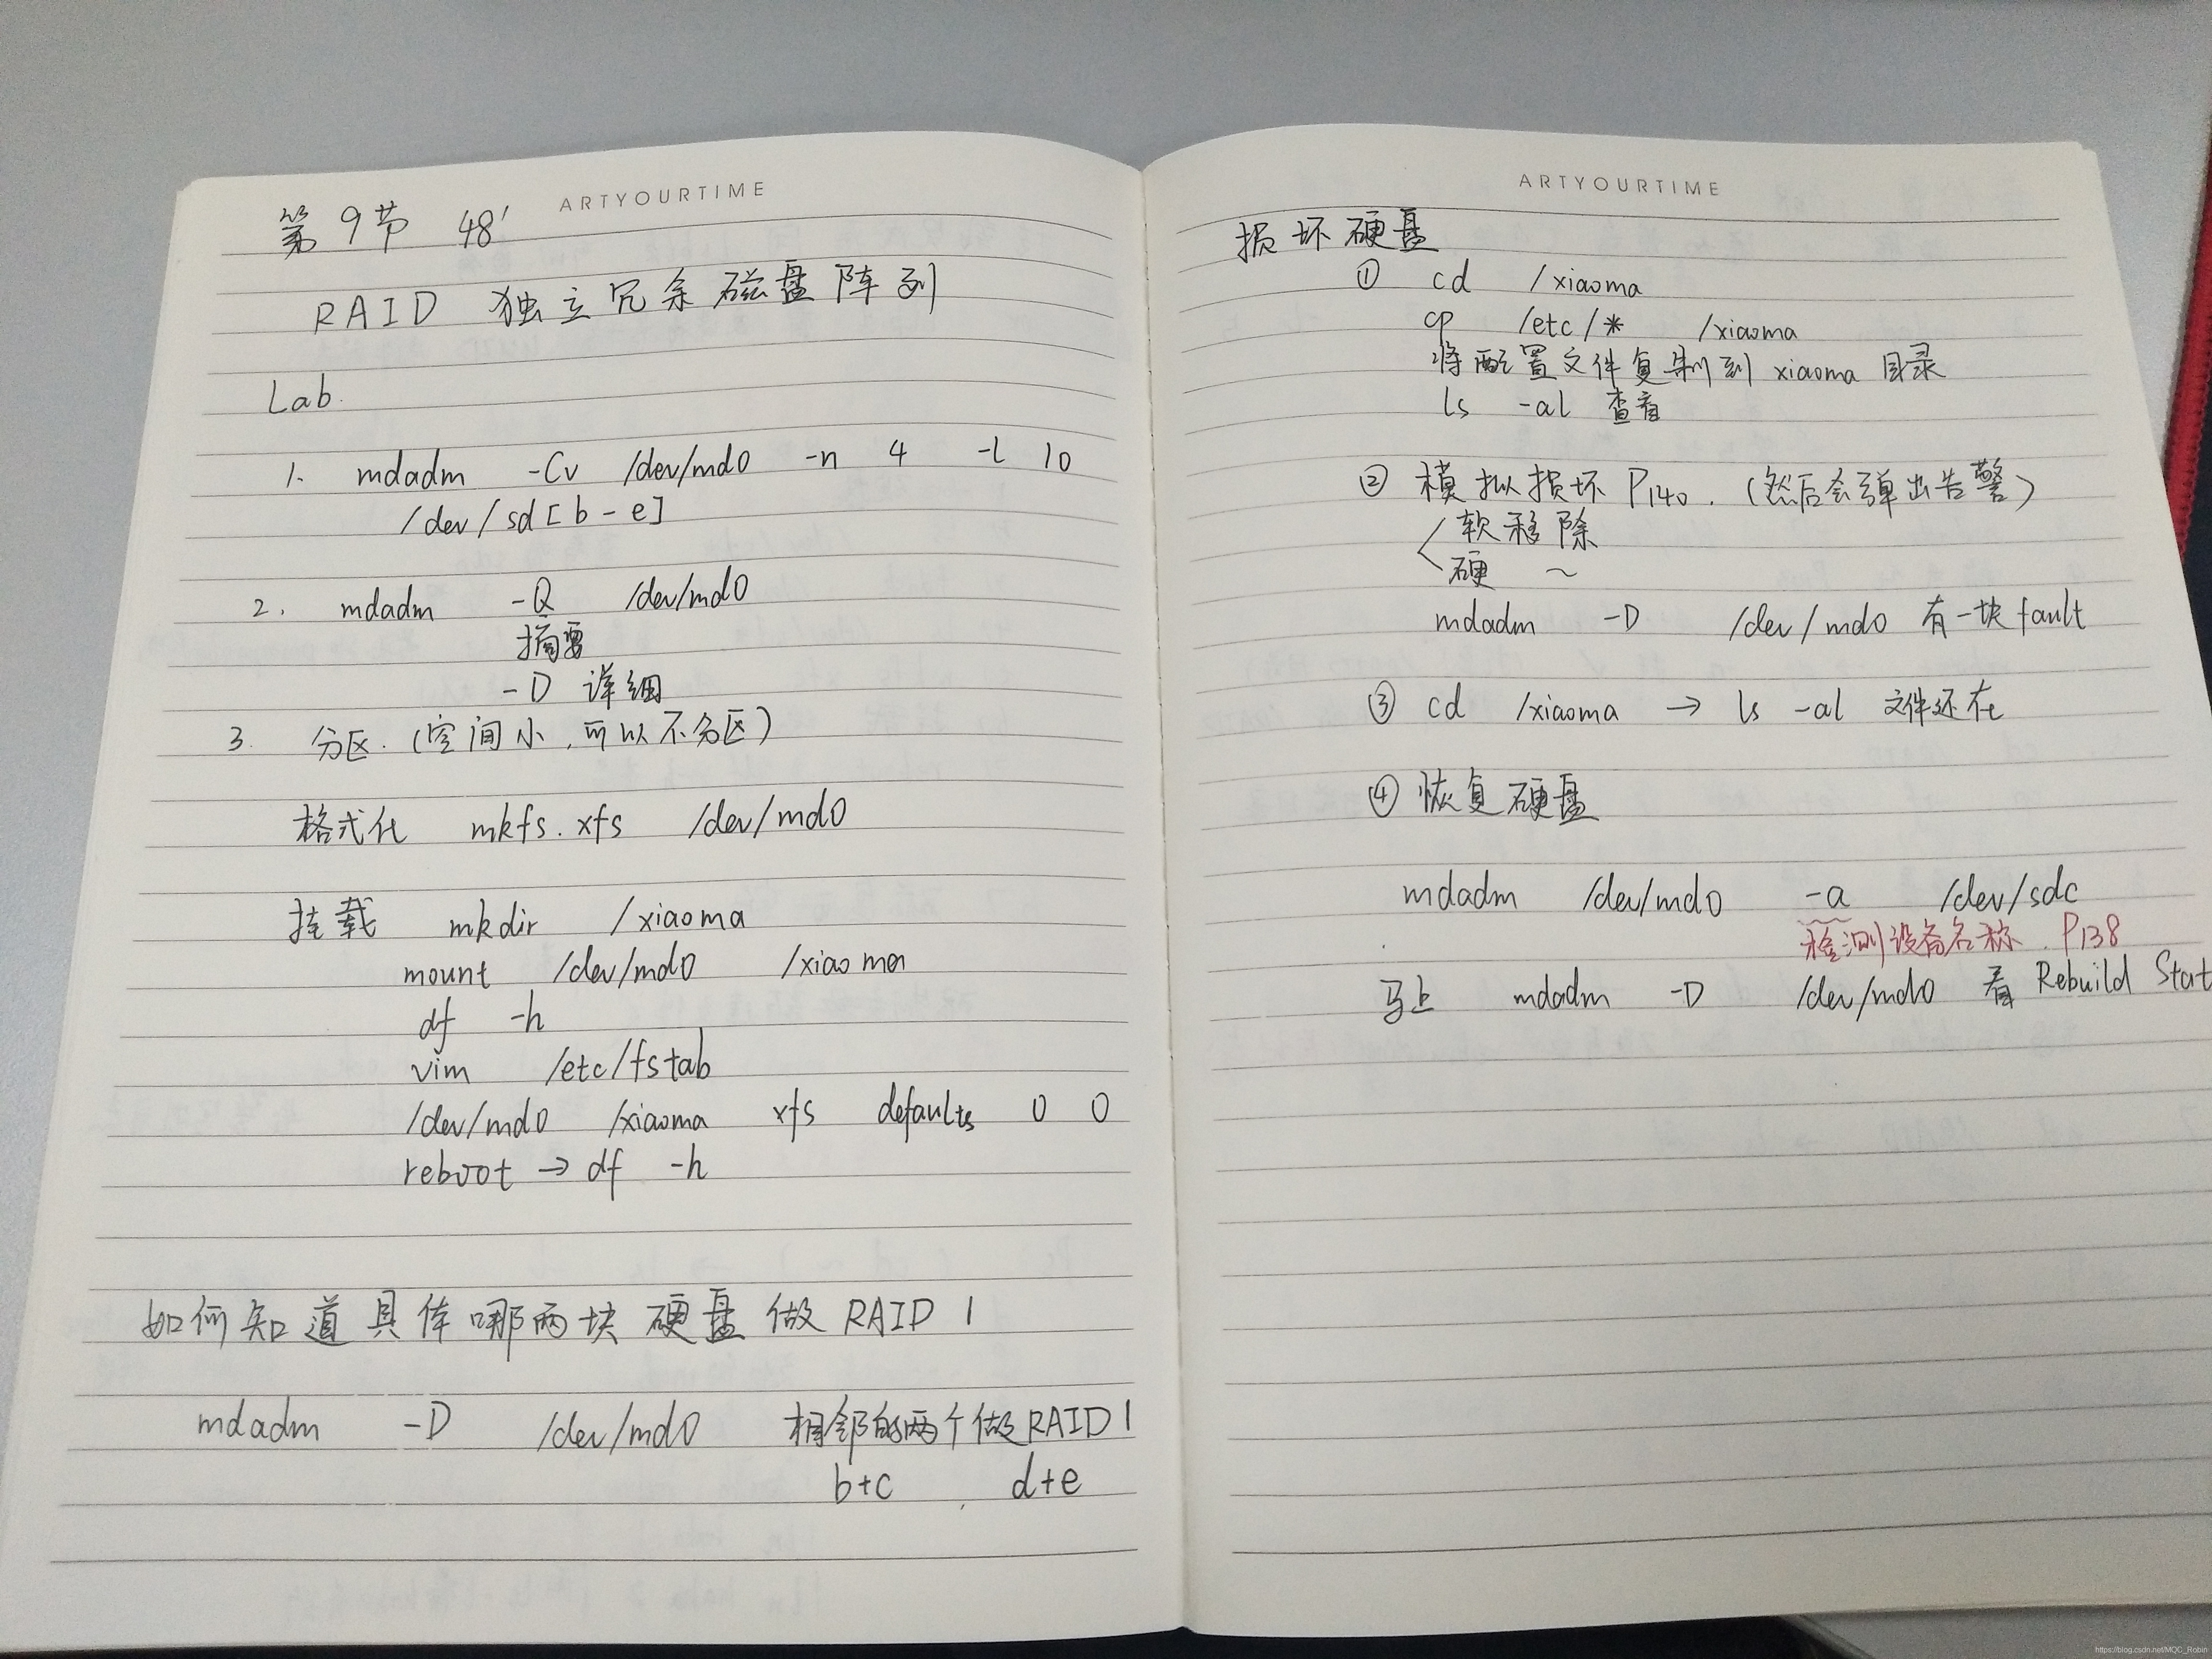 ARTYOURTIME
第9节 48'
RAID 独立冗余磁盘阵列
Lab.
1. mdadm -Cv /dev/md0 -n 4 -l 10
/dev/sd[b-e]
2. mdadm -Q /dev/md0
摘要
-D 详细
3. 分区.(空间小,可以不分区)
格式化 mkfs.xfs /dev/md0
挂载 mkdir /xiaoma
mount /dev/md0 /xiaoma
df -h
vim /etc/fstab
/dev/md0 /xiaoma xfs defaults 0 0
reboot → df -h
如何知道具体哪两块硬盘做 RAID 1
mdadm -D /dev/md0 相邻的两个做RAID1
b+c , d+e
ARTYOURTIME
损坏硬盘
① cd /xiaoma
cp /etc/* /xiaoma
将配置文件复制到 xiaoma 目录
ls -al 查看
② 模拟损坏 P140.(然后会弹出告警)
软移除
硬 ~
mdadm -D /dev/md0 有一块 fault
③ cd /xiaoma → ls -al 文件还在
④ 恢复硬盘
mdadm /dev/md0 -a /dev/sdc
检测设备名称. P138
马上 mdadm -D /dev/md0 看 Rebuild Stat
https://blog.csdn.net/MQC_Robin